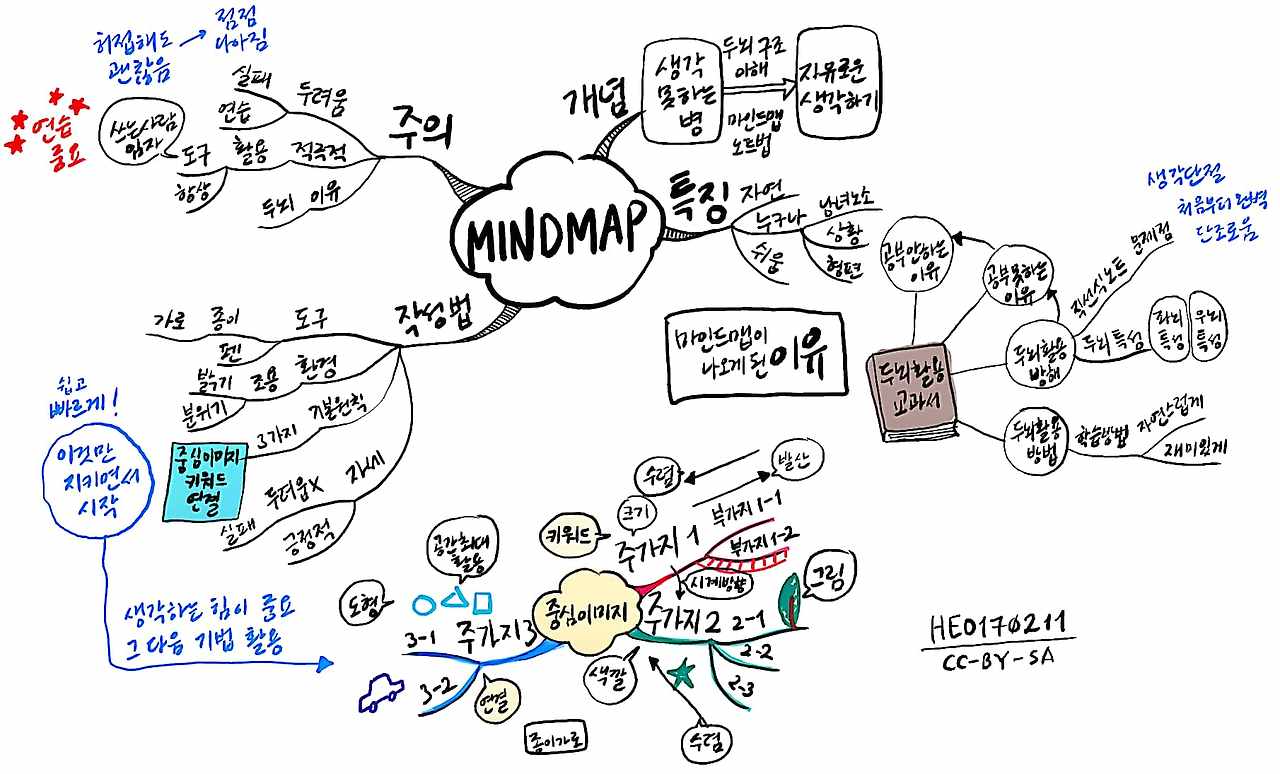 MINDMAP
개념
생각
못하는
병
두뇌 구조
이해
마인드맵
노트법
자유로운
생각하기
특징
자연
누구나
남녀노소
상황
형편
쉬움
주의
두려움
실패
연습
적극적
활용
도구
향상
이유
두뇌
쓰는사람
임자
허접해도
괜찮음
점점
나아짐
연습
중요
작성법
도구
종이
가로
펜
환경
조용
밝기
분위기
기본원칙
3가지
중심이미지
키워드
연결
자세
두려움X
실패
긍정적
쉽고
빠르게!
이것만
지키면서
시작
생각하는 힘이 중요
그 다음 기법 활용
마인드맵이
나오게 된 이유
두뇌활용
교과서
공부안하는
이유
공부못하는
이유
두뇌활용
방해
직선식노트
문제점
생각단절
처음부터 완벽
단조로움
두뇌 특성
좌뇌
특성
우뇌
특성
두뇌활용
방법
학습방법
자연스럽게
재미있게
중심이미지
키워드
크기
수렴
발산
주가지 1
부가지 1-1
부가지 1-2
시계방향
주가지 2
2-1
2-2
2-3
그림
색깔
수렴
주가지 3
3-1
3-2
도형
공간최대
활용
연결
종이가로
HEO170211
CC-BY-SA